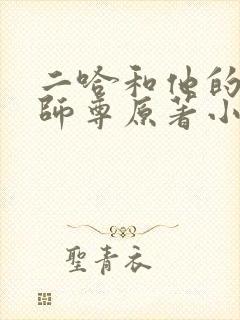 二哈和他的
師尊原著小
聖青衣